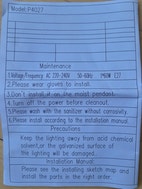 Model:P4017
Maintenance
1.Voltage/Frequency AC 220-240V 50-60Hz E27
2.Please wear gloves to install.
3.Don't install it on the moist pendant.
4.Turn off the power before cleanout.
5.Please wash with the sanitizer without corrosivity.
6.Please install according to the installation manual.
Precautions
Keep the lighting away from acid chemism
solvent,or the galvanized surface of
the lighting will be damaged.
Installation Manual
Please see the installing sketch map and
install the parts in the right order.